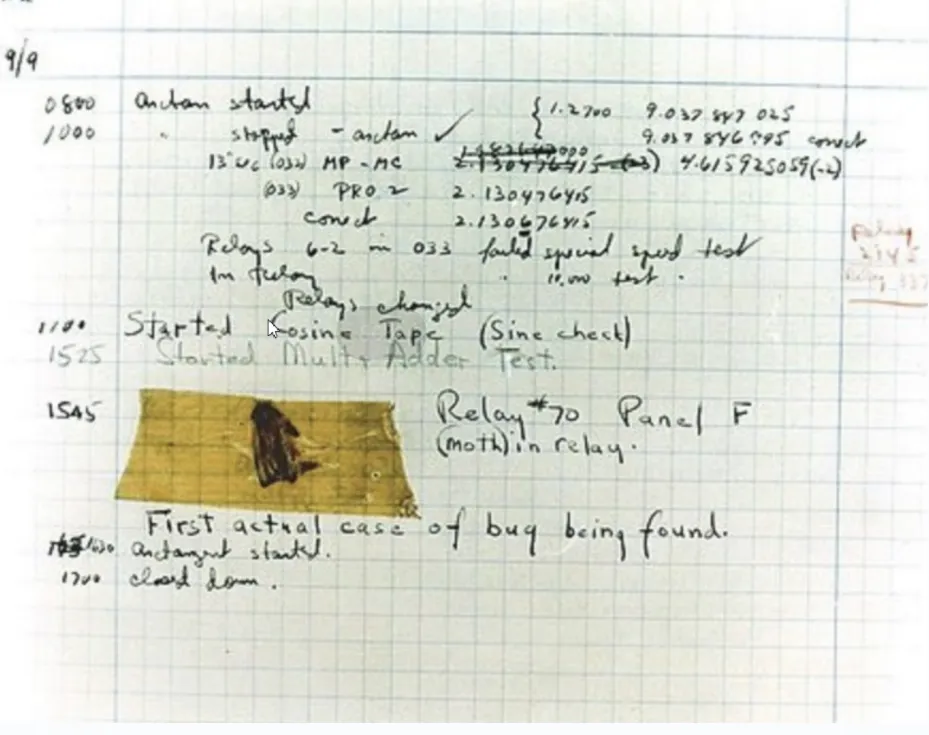 9/9
0800 arctan started { 1.2700 9.037 847 025
1000 " stopped - arctan ✓ { 9.037 846 995 correct
13"uc (032) MP - MC 2.130476415 (-3) 4.615925059(-2)
(033) PRO 2 2.130476415
correct 2.130676415
Relays 6-2 in 033 failed special speed test
In Relay " 10.000 test .
Relays changed
1100 Started Cosine Tape (Sine check)
1525 Started Mult+ Adder Test.
1545 Relay #70 Panel F
(moth) in relay.
First actual case of bug being found.
1630 arctangent started.
1700 closed down .
Relay